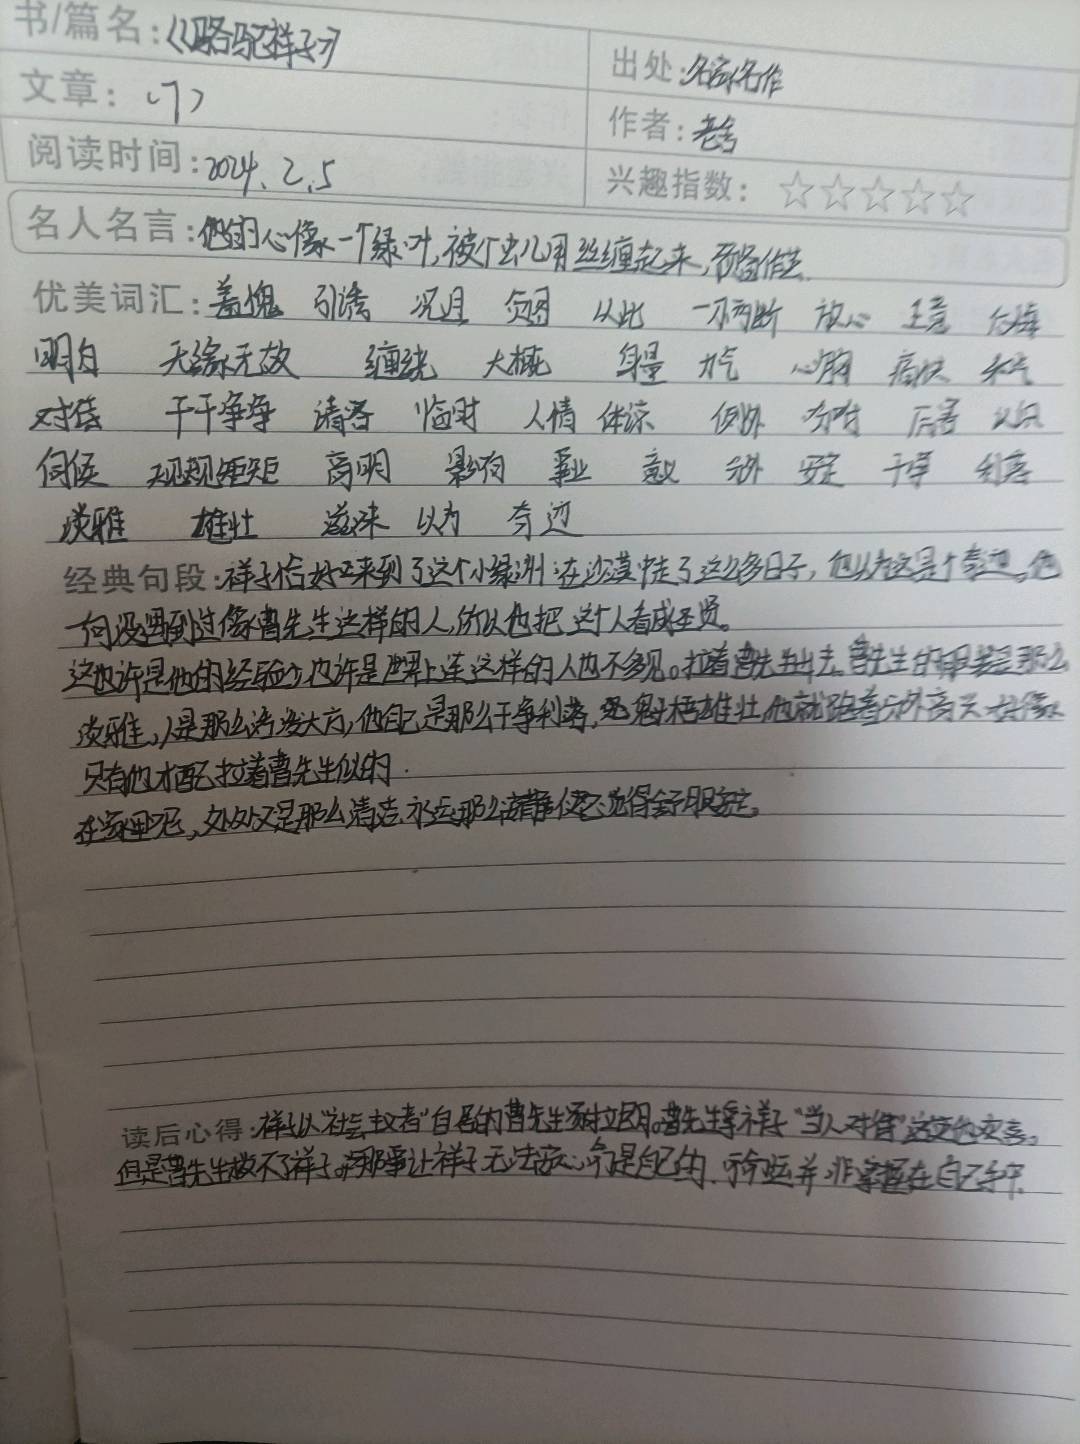 书/篇名:《骆驼祥子》
出处:名家名作
文章:(7)
作者:老舍
阅读时间:2024.2.5
兴趣指数:☆☆☆☆☆
名人名言:他的心像一个绿叶,被个虫儿用丝缠起来,预备作
优美词汇:羞愧 引诱 况且 以此 一刀两断 放心 主意
明白 无缘无故 缠绕 大概 身量 力气 心胸 痛快 和气
对待 干干净净 请客 临时 人情 体谅 例外 吩咐 厉害 认识
伺候 规规矩矩 高明 影响 事业 意义 另外 安定 干净 利落
淡雅 雄壮 滋味 以为 奇迹
经典句段:祥子恰好来到了这个小绿洲 在沙漠中走了这么多日子,他以为这是个奇迹。他
一向没遇到过像曹先生这样的人,所以他把这个人看成圣贤。
这也许是他的经验少,也许是世界上连这样的人也不多见。拉着曹先生出去,曹先生的服装是那么
淡雅,人是那么活泼大方,他自己是那么干净利落,魁梧雄壮,他就跑着分外高兴 好像
只有他才配拉着曹先生似的.
在家里呢,处处又是那么清洁 永远那么 觉得舒服安定。
读后心得:祥子以"社会主义者"自居的曹先生家拉包月。曹先生 祥子"当人对待"
但是曹先生救不了祥子。那事让祥子无法安心 命是自己的.命运并非掌握在自己手中.